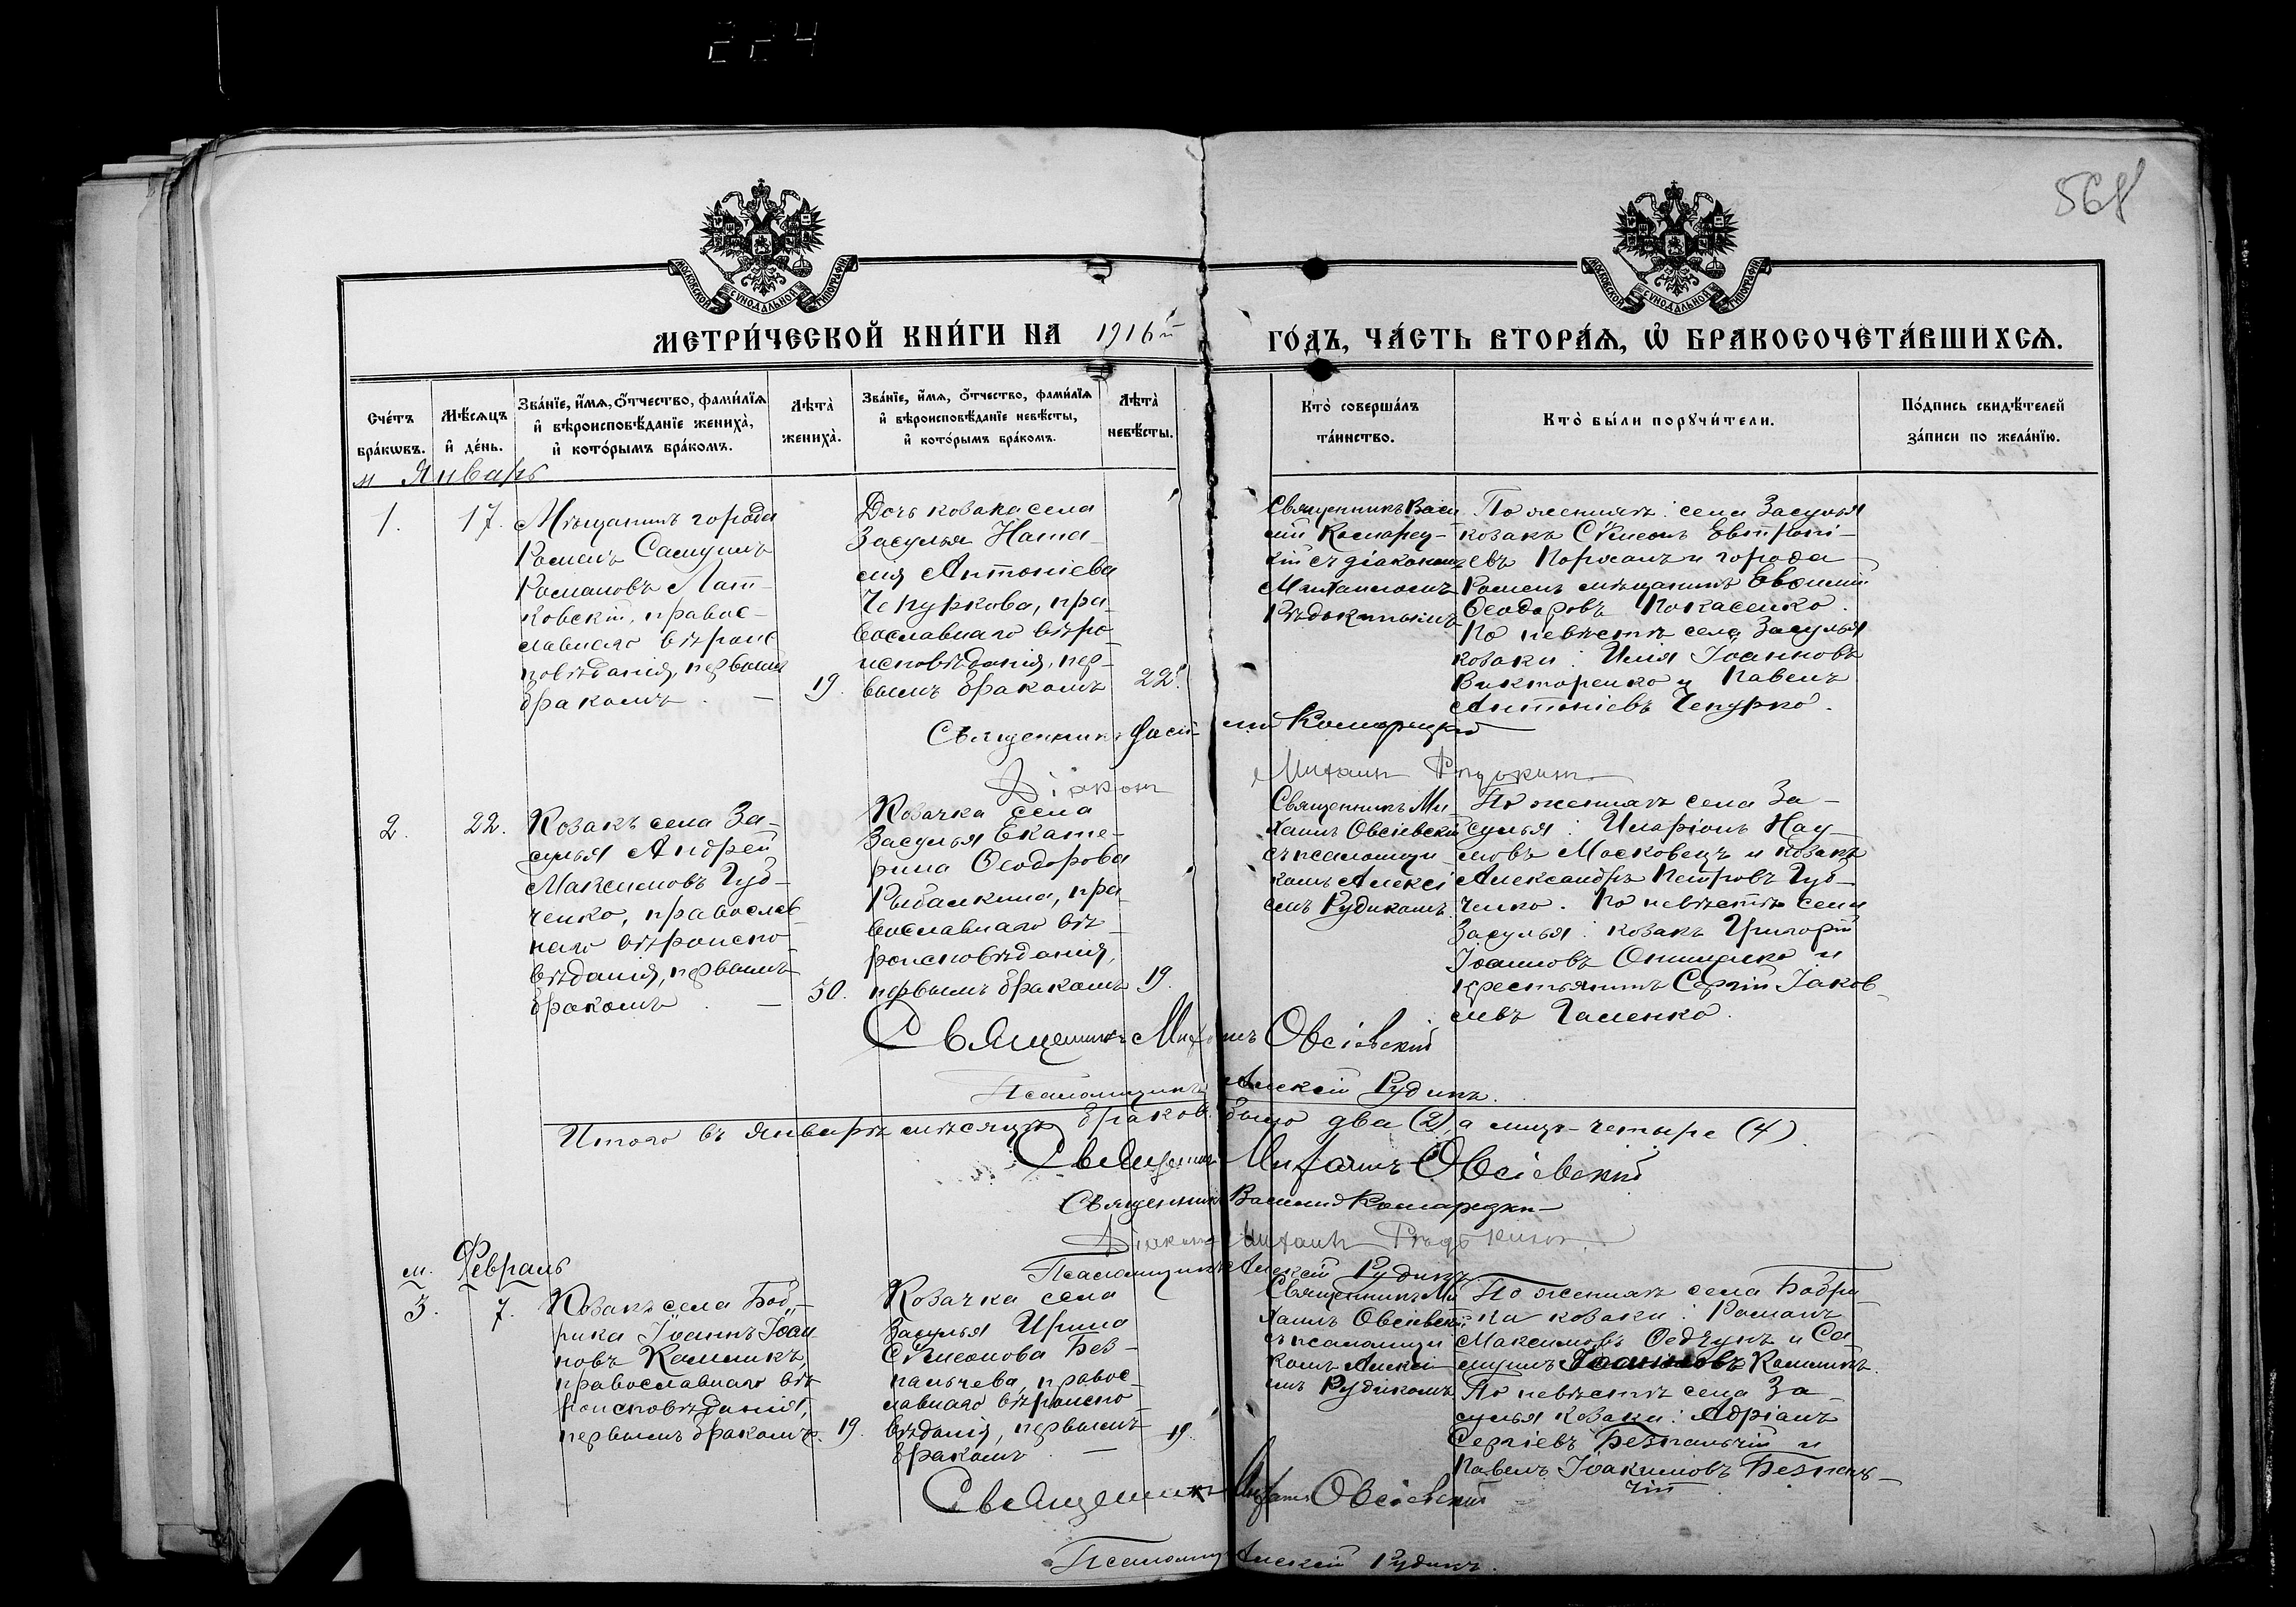 224
568
МОСКОВСКОЙ СУНОДАЛЬНОЙ ТИПОГРАФІИ
МОСКОВСКОЙ СУНОДАЛЬНОЙ ТИПОГРАФІИ
МЕТРИ́ЧЕСКОЙ КНИ́ГИ НА 1916й ГО́ДЪ, ЧА́СТЬ ВТОРА́Ѧ, Ѡ҆ БРАКОСОЧЕТА́ВШИХСѦ.
Сче́тъ
бра́кѡвъ.
Мѣ́сѧцъ
и҆ де́нь.
Зва́нїе, и҆́мѧ, ѻ҆́тчество, фами́лїѧ
и҆ вѣроисповѣ́данїе жениха̀,
и҆ кото́рымъ бра́комъ.
Лѣта̀
жениха̀.
Зва́нїе, и҆́мѧ, ѻ҆́тчество, фами́лїѧ
и҆ вѣроисповѣ́данїе невѣ́сты,
и҆ кото́рымъ бра́комъ.
Лѣта̀
невѣ́сты.
Кто̀ соверша́лъ
та́инство.
Кто̀ бы́ли порꙋчи́тели.
По́дпись свидѣ́телей
за́писи по жела́нїю.
м Январь
1.
17.
Мѣщанинъ города
Роменъ Самуилъ
Романовъ Лат-
ковскій, правос-
лавнаго вѣроис
повѣданія, первымъ
бракомъ. —
19.
Дочь козака села
Засулья Ната-
лія Антоніева
Чепуркова, пра-
вославнаго вѣро-
исповѣданія, пер-
вымъ бракомъ
22.
Священникъ Васи
лій Комарец-
кій съ діакономъ
Михаиломъ
Рѣдькинымъ
По женихѣ: села Засулья
козакъ Сѵмеонъ Евтропі-
евъ Коржъ и города
Роменъ мѣщанинъ Евѳимій
Ѳеодоровъ Покасенко.
По невѣстѣ села Засулья
козаки: Илія Іоанновъ
Викторенко и Павелъ
Антоніевъ Чепурко.
Священникъ Василій Комарецкій
Діаконъ Михаилъ Рѣдькинъ
2.
22.
Козакъ села За-
сулья Андрей
Максимовъ Губ-
ченко, православ
наго вѣроиспо-
вѣданія, первымъ
бракомъ. —
30.
Козачка села
Засулья Екате-
рина Ѳеодорова
Рыбалкина, пра-
вославнаго вѣ-
роисповѣданія,
первымъ бракомъ
19.
Священникъ Ми
хаилъ Овсіевскій
съ псаломщи-
комъ Алексі
емъ Рудикомъ.
По женихѣ села За-
сулья: Иларіонъ Нау-
мовъ Московецъ и козакъ
Александръ Петровъ Губ-
ченко. По невѣстѣ села
Засулья: козакъ Григорій
Іоанновъ Онищенко и
крестьянинъ Сергій Іаков-
левъ Галенко.
Священникъ Михаилъ Овсіевскій
Псаломщикъ Алексій Рудикъ.
Итого въ январѣ мѣсяцѣ браковъ было два (2), а лицъ-четыре (4).
Священникъ Михаилъ Овсіевскій
Священникъ Василій Комарецкій
Діаконъ Михаилъ Рѣдькинъ.
Псаломщикъ Алексій Рудикъ
м. Февраль
3.
7.
Козакъ села Боб-
рика Іоаннъ Іоан
новъ Калникъ,
православнаго вѣ
роисповѣданія,
первымъ бракомъ.
19.
Козачка села
Засулья Ирина
Сѵмеонова Без-
пальчева, правос-
лавнаго вѣроиспо-
вѣданія, первымъ
бракомъ. —
19.
Священникъ Ми
хаилъ Овсіевскій
съ псаломщи
комъ Алексі-
емъ Рудикомъ
По женихѣ села Бобри
ка козаки: Романъ
Максимовъ Федчунъ и Са
муилъ Іоанновъ Калникъ.
По невѣстѣ села За-
сулья козаки: Адріанъ
Сергіевъ Безпальчій и
Павелъ Іоакимовъ Безпаль-
чій
Священникъ Михаилъ Овсіевскій
Псаломщикъ Алексій Рудикъ.